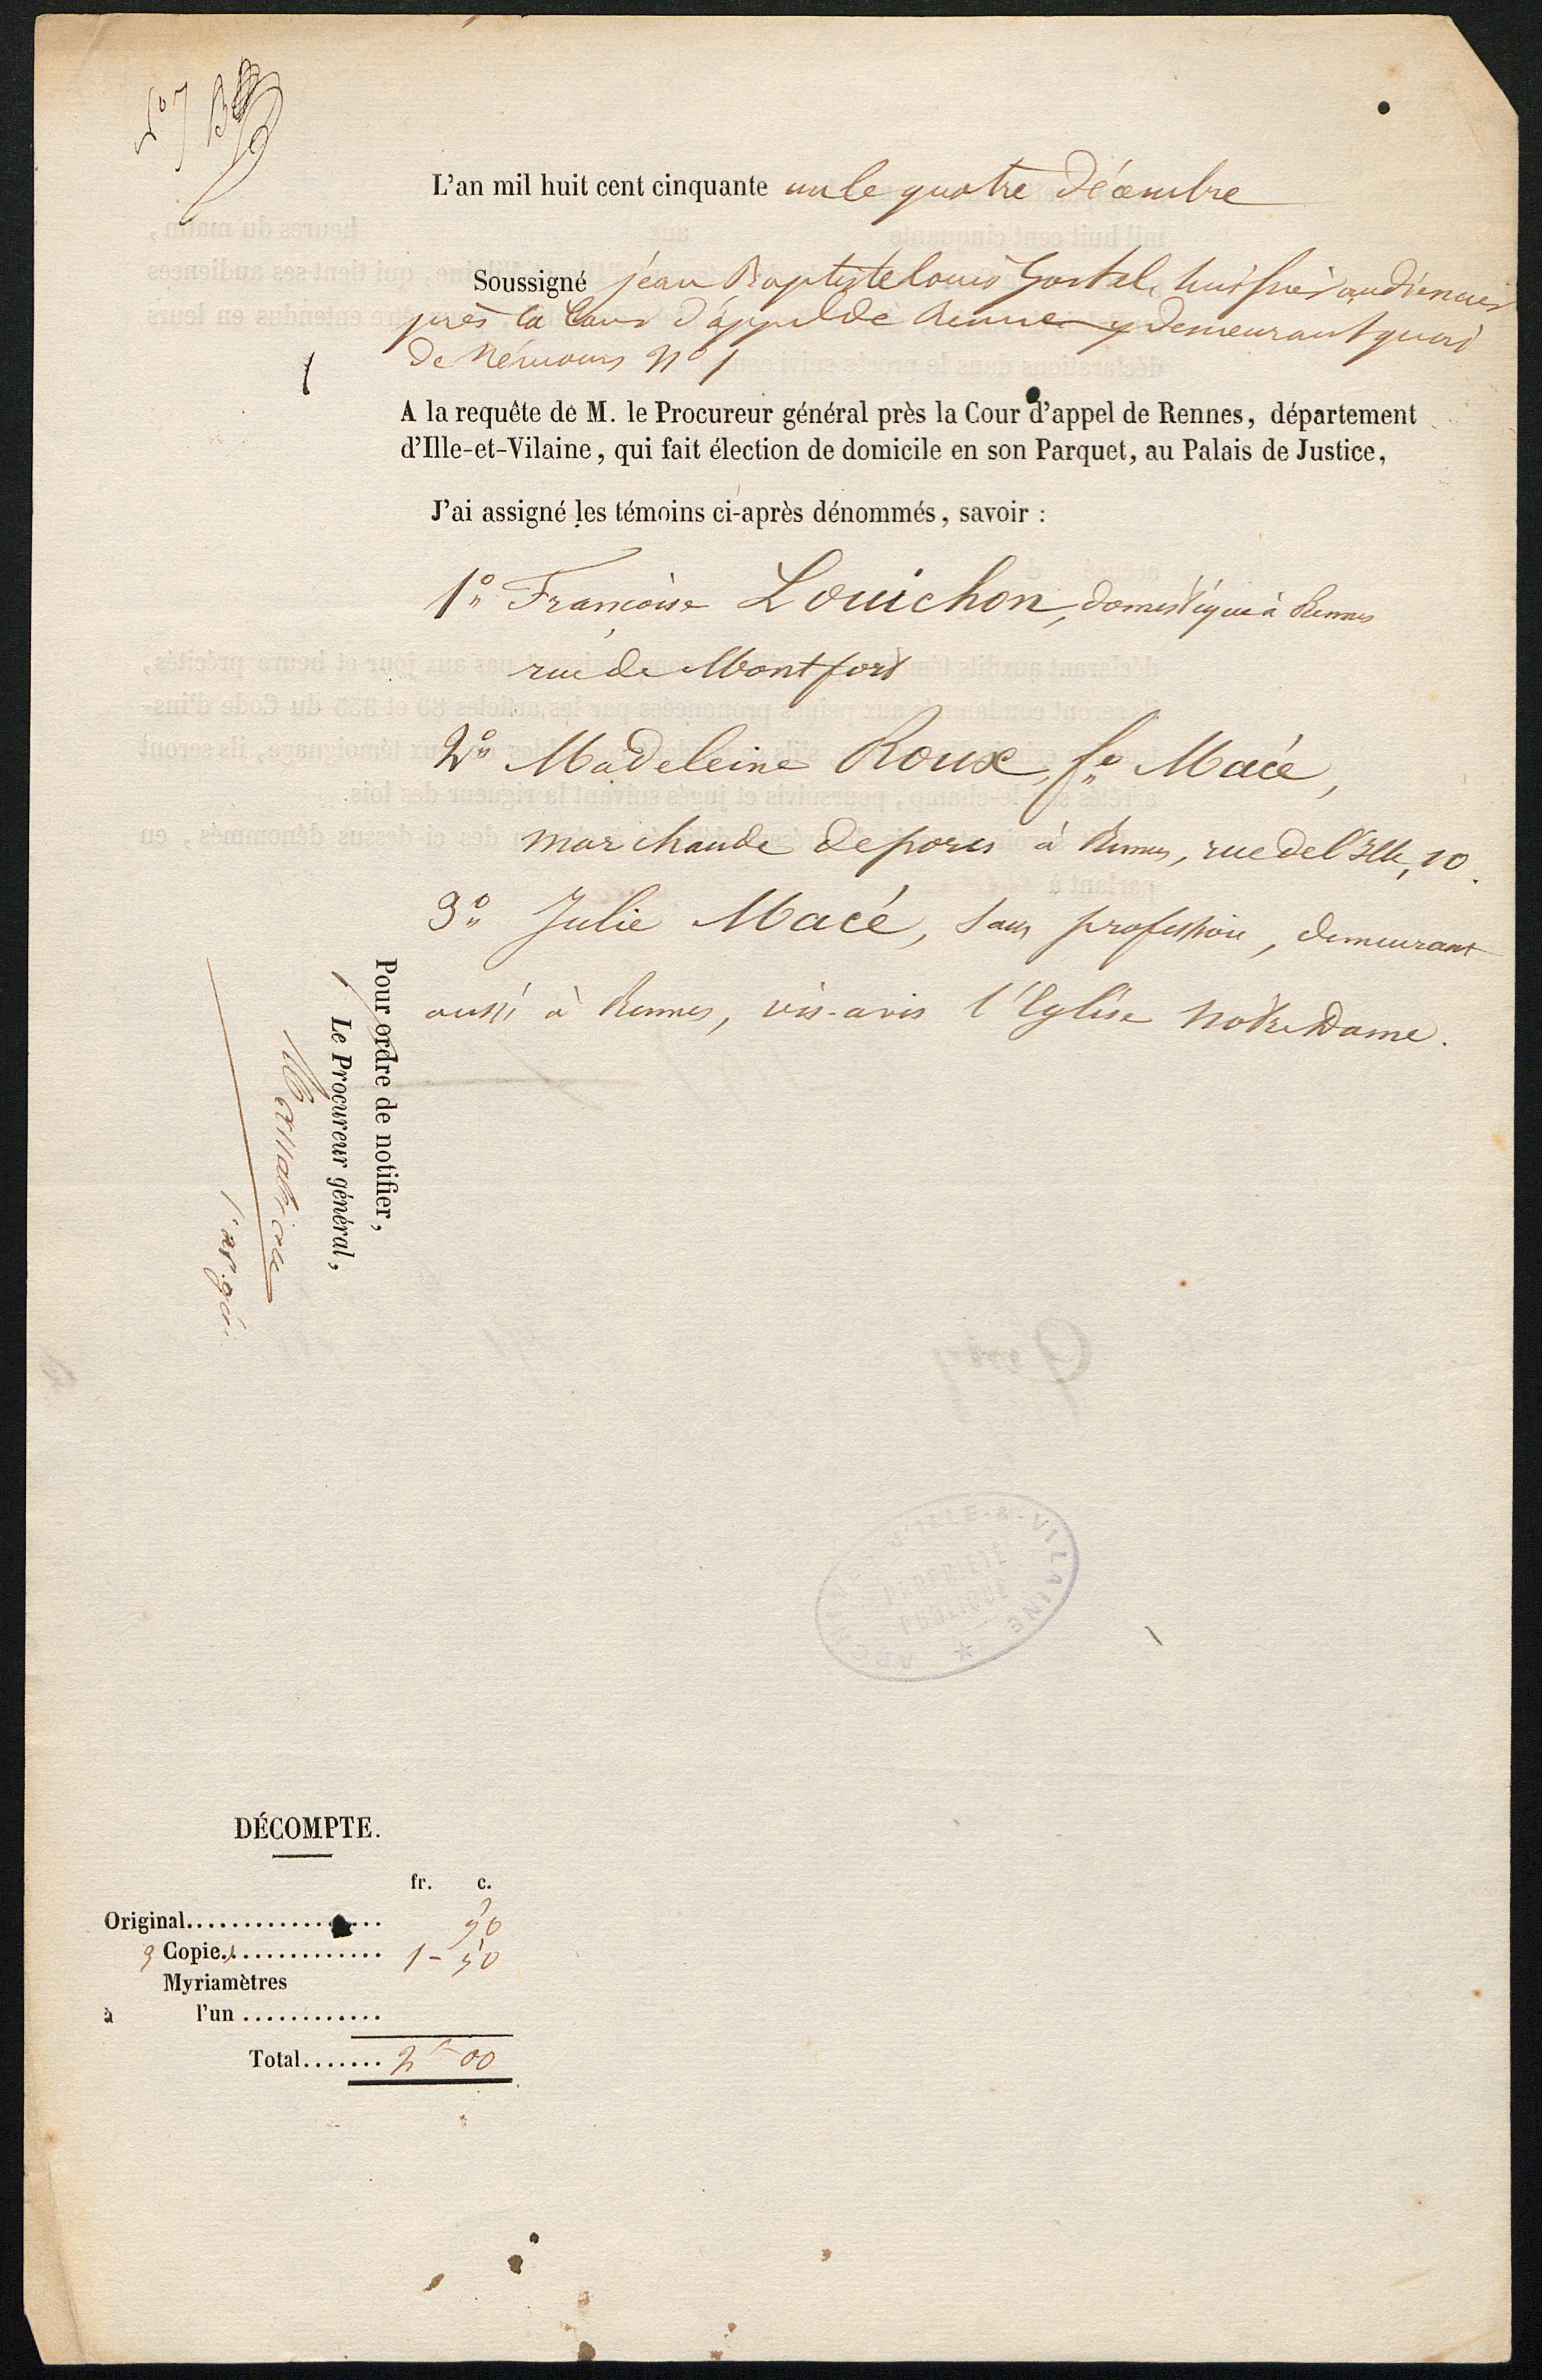 L'an mil huit cent cinquante un le quatre Décembre
Soussigné jean Baptiste Louis huissier audiencier
près la Cour d'appel de Rennes y demeurant quai
de Némours N° 1
A la requête de M. le Procureur général près la Cour d'appel de Rennes, département
d'Ille-et-Vilaine, qui fait élection de domicile en son Parquet, au Palais de Justice,
J'ai assigné les témoins ci-après dénommés, savoir :
1° Françoise Louichon, domestique à Rennes
rue de Montfort
2° Madeleine Roux, fe Macé,
marchande de porcs à Rennes, rue de l'Ille, 10.
3° Julie Macé, sans profession, demeurant
aussi à Rennes, vis-avis l'Eglise Notre Dame.
Pour ordre de notifier,
Le Procureur général,
ARCHIVES D'ILLE-&-VILAINE
PROPRIÉTÉ
PUBLIQUE
DÉCOMPTE.
fr. c.
Original.................. 50
3 Copies............. 1 - 50
Myriamètres
à l'un ............
Total....... 2f 00